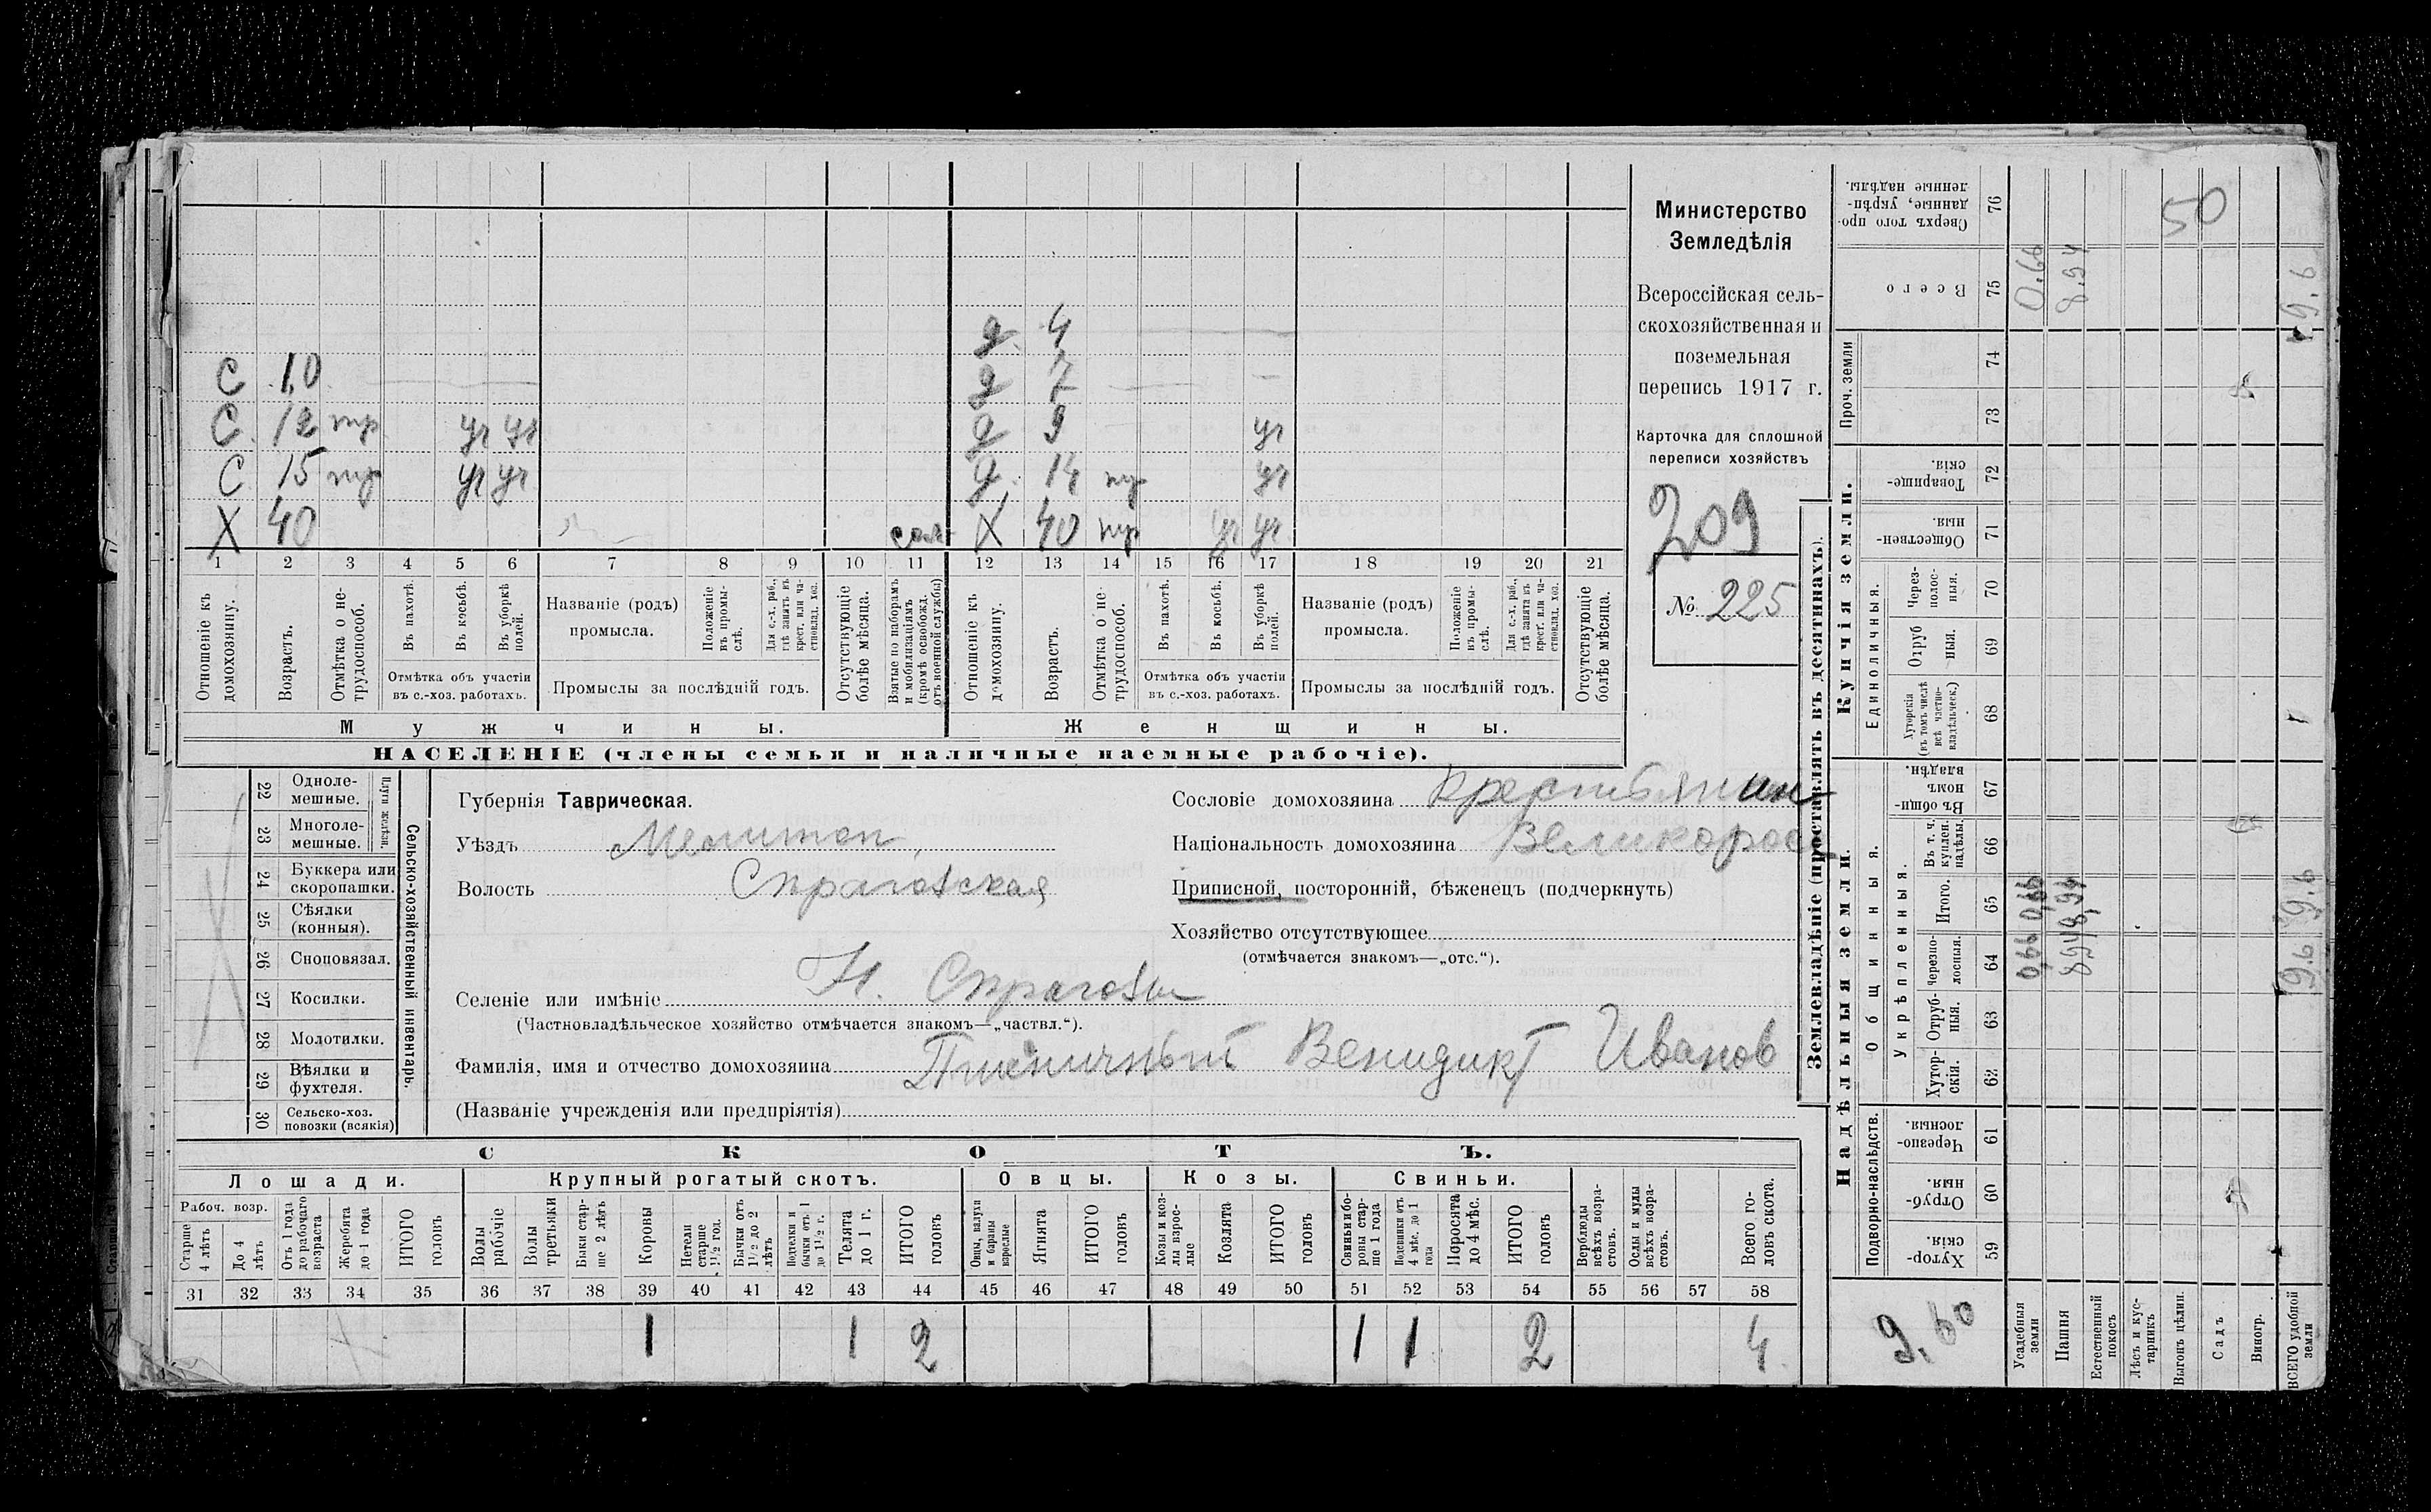 Министерство
Земледѣлія
Всероссійская сель-
скохозяйственная и
поземельная
перепись 1917 г.
Карточка для сплошной
переписи хозяйствъ
209
№ 225
д. 4
С 10 д 7
С. 12 д 9 уч
С 15 уч уч д. 14 уч
Х 40 Х 40 уч уч
1 2 3 4 5 6 7 8 9 10 11 12 13 14 15 16 17 18 19 20 21
Отношеніе къ домохозяину.
Возрастъ.
Отмѣтка о не-трудоспособ.
Въ пахотѣ.
Въ косьбѣ.
Въ уборкѣ полей.
Отмѣтка объ участіи
въ с.-хоз. работахъ.
Названіе (родъ)
промысла.
Положеніе въ промы-слѣ.
Для с.-х. раб., гдѣ занятъ въ крест. или ча-стновлад. хоз.
Промыслы за послѣдній годъ.
Отсутствующіе болѣе мѣсяца.
Взятые по наборамъ и мобилизаціямъ (кромѣ освобожд. отъ военной службы)
Отношеніе къ домохозяину.
Возрастъ.
Отмѣтка о не-трудоспособ.
Въ пахотѣ.
Въ косьбѣ.
Въ уборкѣ полей.
Отмѣтка объ участіи
въ с.-хоз. работахъ.
Названіе (родъ)
промысла.
Положеніе въ промы-слѣ.
Для с.-х. раб., гдѣ занята въ крест. или ча-стновлад. хоз.
Промыслы за послѣдній годъ.
Отсутствующіе болѣе мѣсяца.
Мужчины. Женщины.
НАСЕЛЕНІЕ (члены семьи и наличные наемные рабочіе).
22 Одноле-мешные.
23 Многоле-мешные.
Плуги желѣзн.
24 Буккера или скоропашки.
25 Сѣялки (конныя).
26 Сноповязал.
27 Косилки.
28 Молотилки.
29 Вѣялки и фухтеля.
30 Сельско-хоз. повозки (всякія)
Сельско-хозяйственный инвентарь.
Губернія Таврическая.
Уѣздъ Мелитоп.
Волость
Селеніе или имѣніе Н.
(Частновладѣльческое хозяйство отмѣчается знакомъ—„частвл.“).
Фамилія, имя и отчество домохозяина Пшеничный Венидикт Иванов
(Названіе учрежденія или предпріятія)
Сословіе домохозяина Крестьянин
Національность домохозяина Великоросс
Приписной, посторонній, бѣженецъ (подчеркнуть)
Хозяйство отсутствующее
(отмѣчается знакомъ—„отс.“).
СКОТЪ.
Лошади. Крупный рогатый скотъ. Овцы. Козы. Свиньи.
Рабоч. возр.
Старше 4 лѣтъ
До 4 лѣтъ
Отъ 1 года до рабочаго возраста
Жеребята до 1 года
ИТОГО головъ
Волы рабочіе
Волы третьяки
Быки стар-ше 2 лѣтъ
Коровы
Нетели старше 1½ год.
Бычки отъ 1½ до 2 лѣтъ
Подтелки и бычки отъ 1 до 1½ г.
Телята до 1 г.
ИТОГО головъ
Овцы, валухи и бараны взрослые
Ягнята
ИТОГО головъ
Козы и коз-лы взрос-лые
Козлята
ИТОГО головъ
Свиньи и бо-ровы стар-ше 1 года
Подсвинки отъ 4 мѣс. до 1 года
Поросята до 4 мѣс.
ИТОГО головъ
Верблюды всѣхъ возра-стовъ.
Ослы и мулы всѣхъ возра-стовъ.
Всего го-ловъ скота.
31 32 33 34 35 36 37 38 39 40 41 42 43 44 45 46 47 48 49 50 51 52 53 54 55 56 57 58
1 1 2 1 1 2 4
Землевладѣніе (проставлять въ десятинахъ).
Надѣльныя земли. Купчія земли. Проч. земли
Подворно-наслѣдств.
Общинныя.
Укрѣпленныя.
Единоличныя.
59 Хутор-скія.
60 Отруб-ныя.
61 Черезпо-лосныя.
62 Хутор-скія.
63 Отруб-ныя.
64 черезпо-лосныя.
65 Итого.
66 Въ т. ч. куплен. надѣлы.
67 Въ общи-нномъ владѣн.
68 Хуторскія (въ томъ числѣ всѣ частно-владѣльческ.)
69 Отруб ныя.
70 Через-полос-ныя.
71 Обществен-ныя.
72 Товарище-скія.
73
74
75 Всего
76 Сверхъ того про-данные, укрѣп-ленные надѣлы.
9,60
Усадебныя земли 0,66 0,66 0,66
Пашня 8,94 8,94 8,94
Естественный покосъ
Лѣсъ и кус-тарникъ
Выгонъ цѣлин.
Садъ
Виногр.
ВСЕГО удобной земли 9.6 9.6 9.6
50